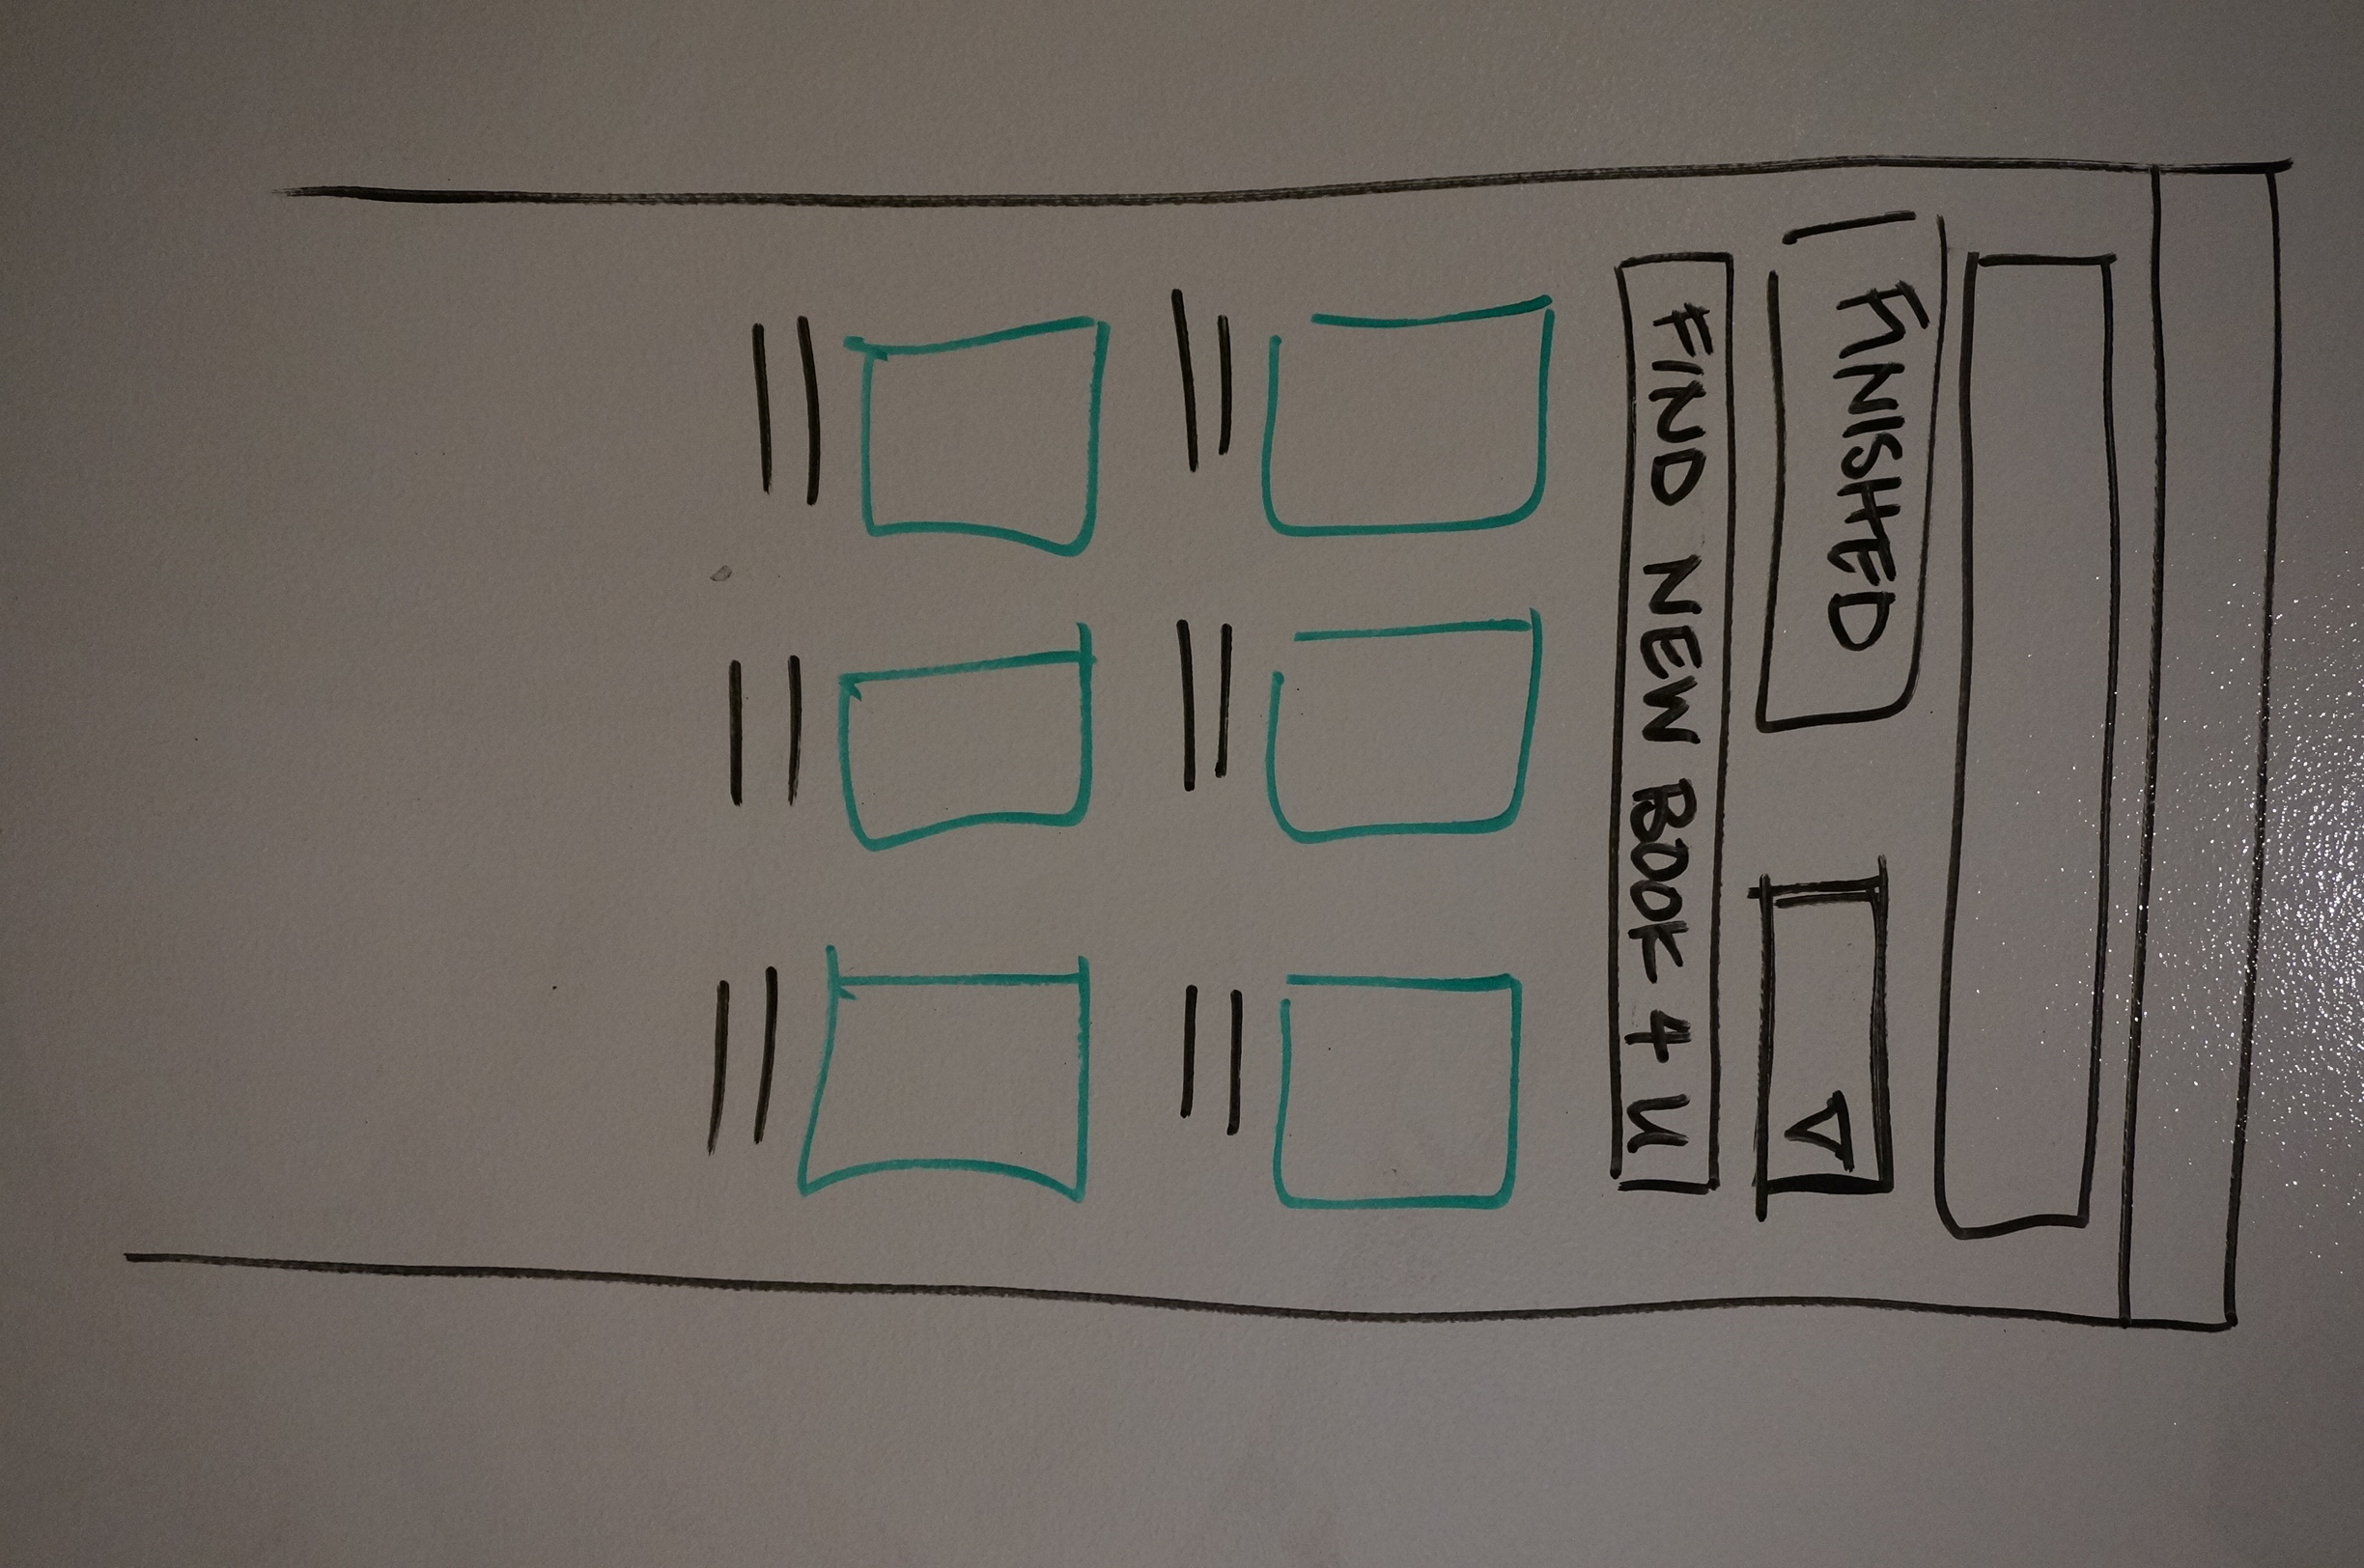 FINISHED
FIND NEW BOOK 4 U